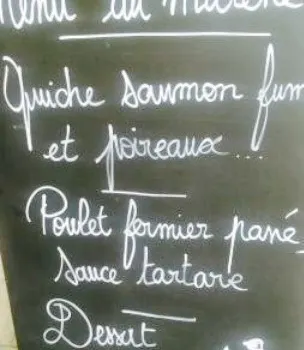 Menu du marché
Quiche saumon fum
et poireaux...
Poulet fermier pané
sauce tartare
Dessert